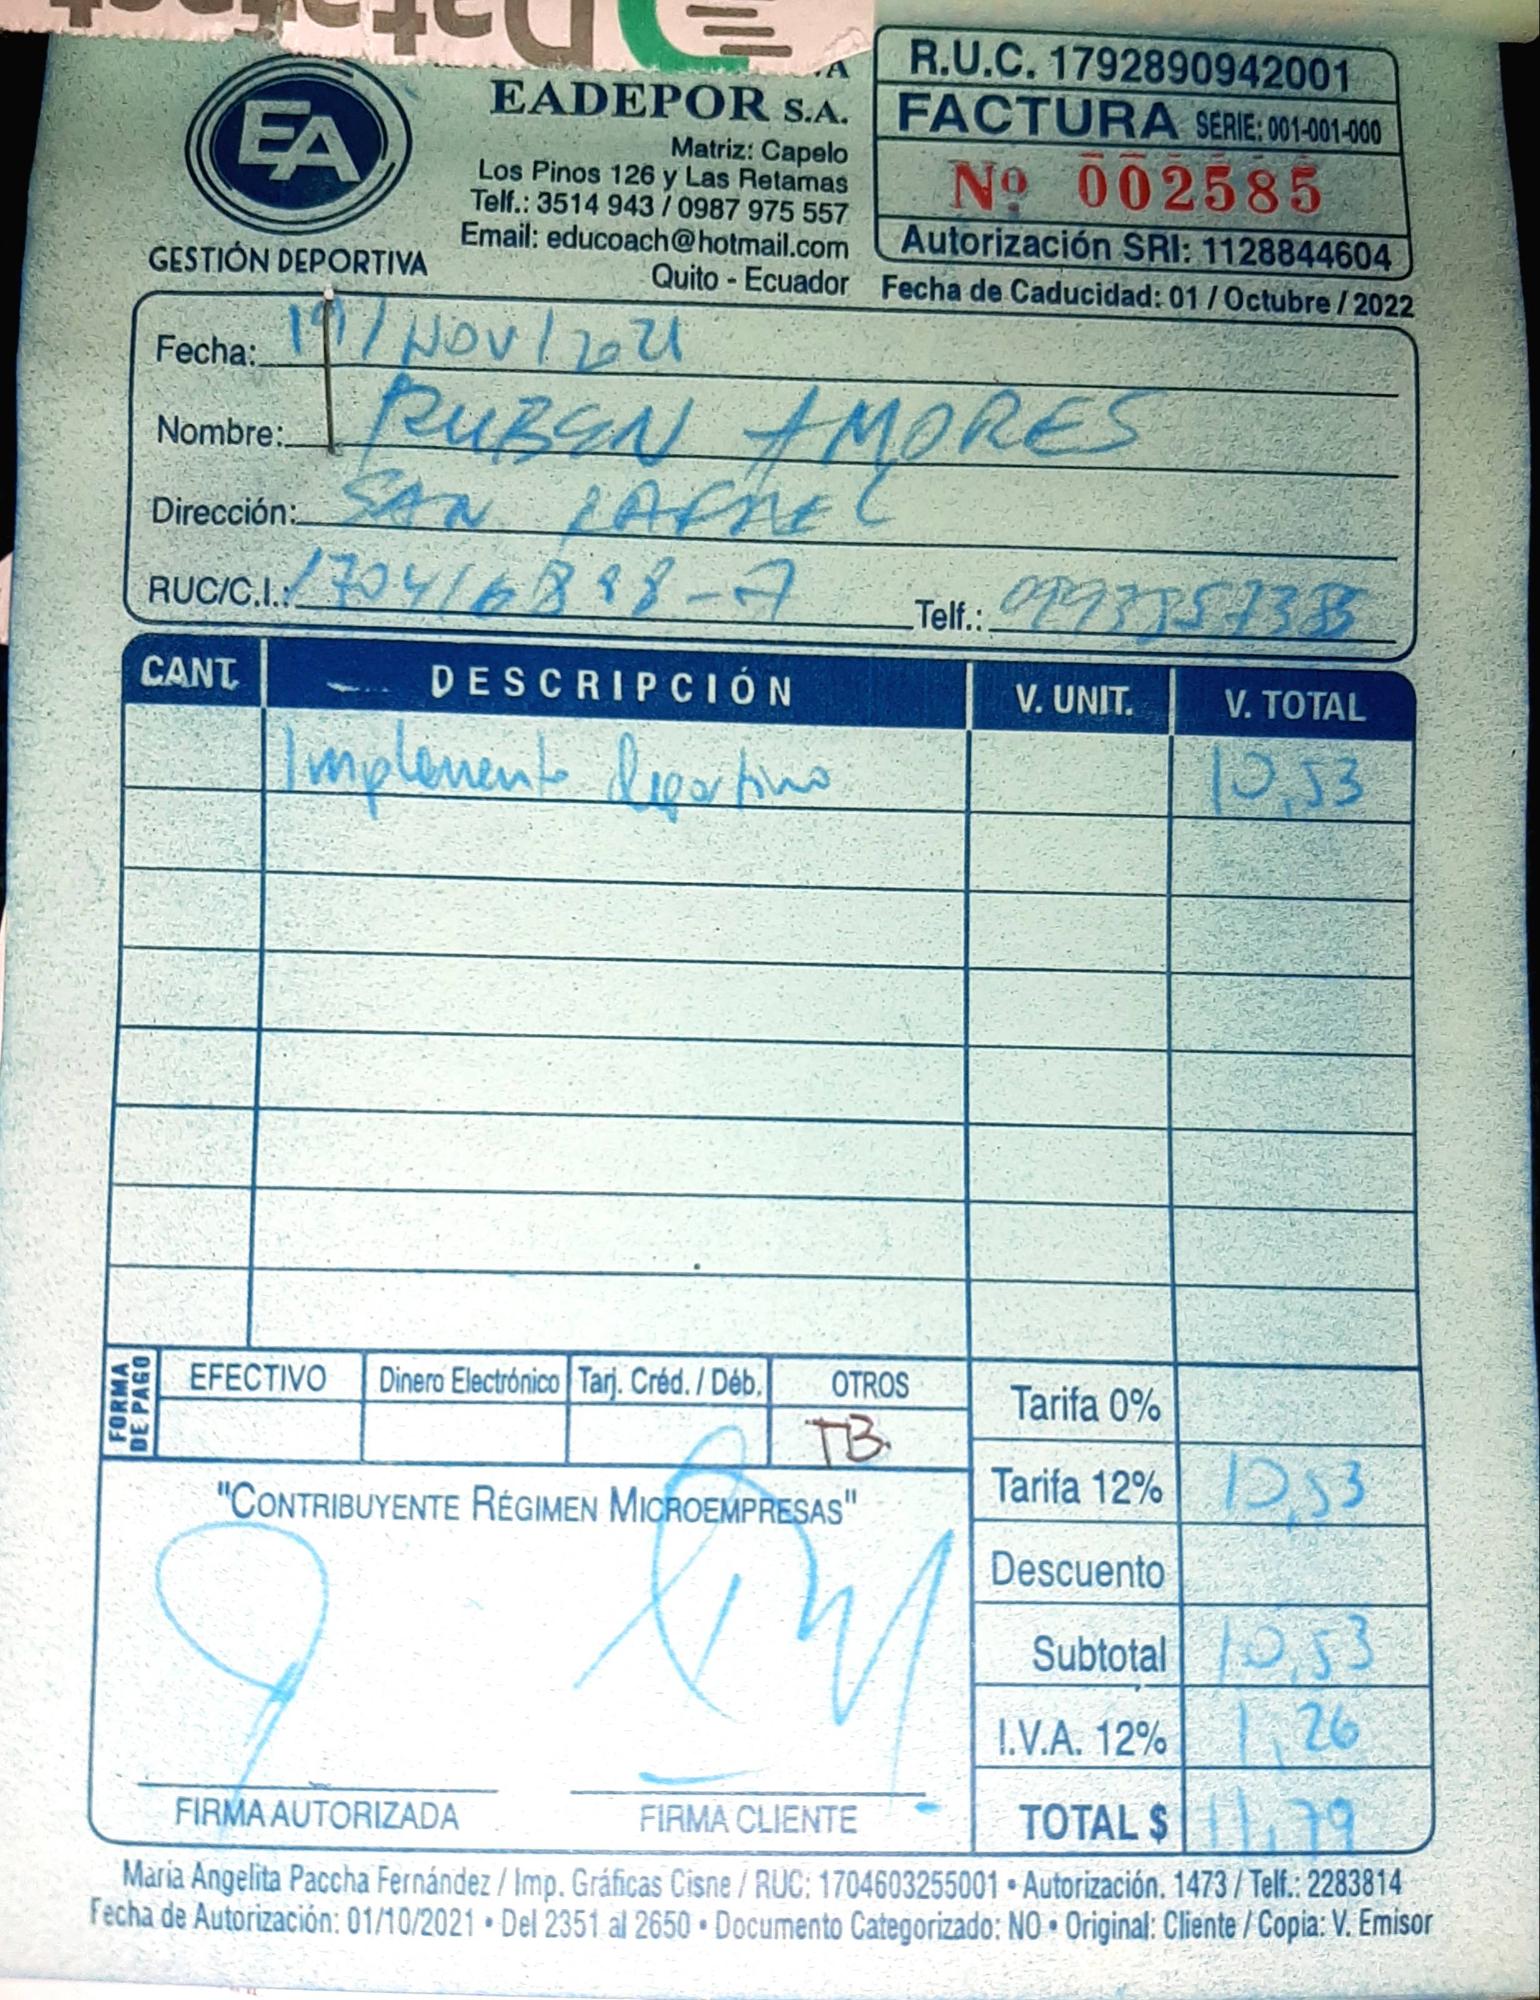 Datafast
EA
GESTIÓN DEPORTIVA
EADEPOR S.A.
Matriz: Capelo
Los Pinos 126 y Las Retamas
Telf.: 3514 943 / 0987 975 557
Email: educoach@hotmail.com
Quito - Ecuador
R.U.C. 1792890942001
FACTURA SERIE: 001-001-000
Nº 002585
Autorización SRI: 1128844604
Fecha de Caducidad: 01 / Octubre / 2022
Fecha: 19/NOV/2021
Nombre: RUBEN AMORES
Dirección: SAN RAFAEL
RUC/C.I.: 170416888-7 Telf.:
CANT. DESCRIPCIÓN V. UNIT. V. TOTAL
Implemento deportivo 10,53
FORMA DE PAGO
EFECTIVO Dinero Electrónico Tarj. Créd. / Déb. OTROS
TB.
Tarifa 0%
Tarifa 12% 10,53
Descuento
Subtotal 10,53
I.V.A. 12% 1,26
TOTAL $ 11,79
"CONTRIBUYENTE RÉGIMEN MICROEMPRESAS"
FIRMA AUTORIZADA FIRMA CLIENTE
María Angelita Paccha Fernández / Imp. Gráficas Cisne / RUC: 1704603255001 • Autorización. 1473 / Telf.: 2283814
Fecha de Autorización: 01/10/2021 • Del 2351 al 2650 • Documento Categorizado: NO • Original: Cliente / Copia: V. Emisor